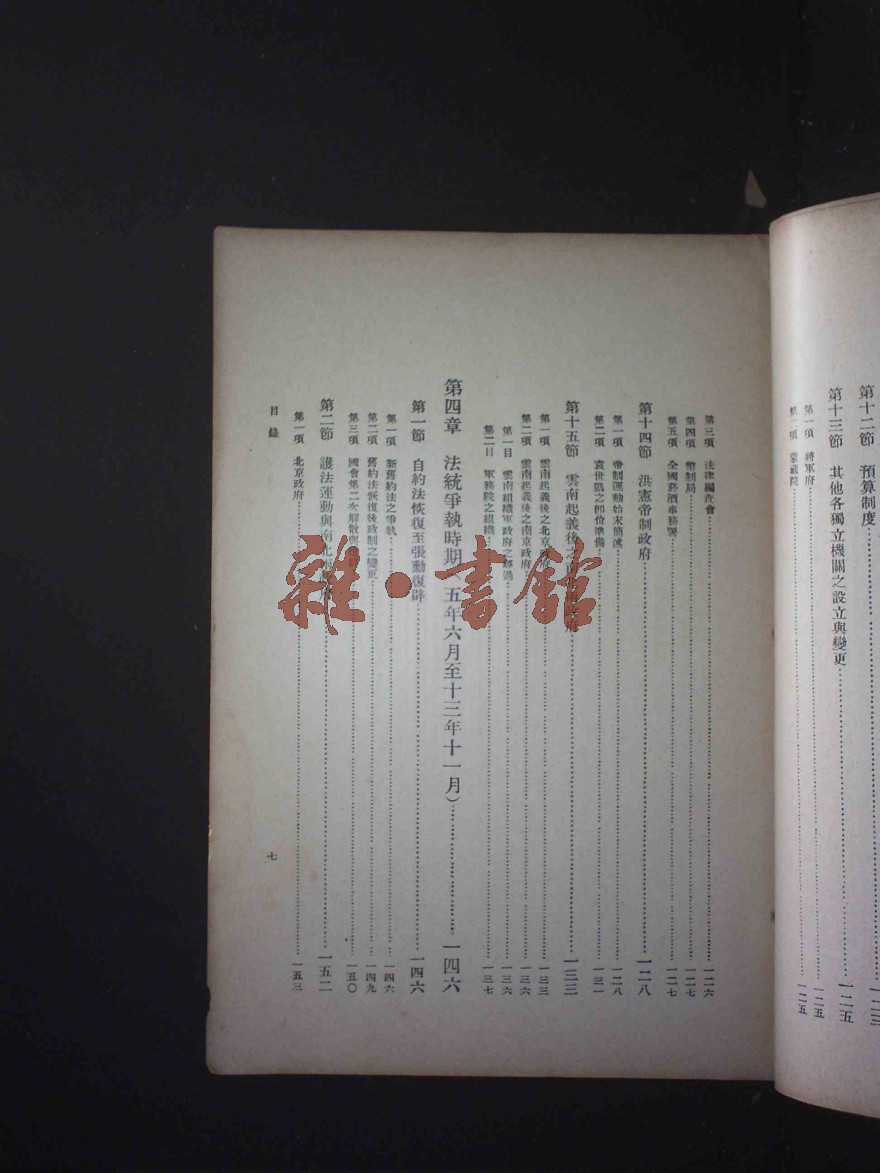 第十二節 預算制度……一二三
第十三節 其他各獨立機關之設立與變更……一二五
第一項 將軍府……一二五
第二項 蒙藏院……一二五
第三項 法律編查會……一二六
第四項 幣制局……一二七
第五項 全國菸酒事務署……一二七
第十四節 洪憲帝制政府……一二八
第一項 帝制運動始末簡述……一二八
第二項 袁世凱之卽位準備……一三一
第十五節 雲南起義後之……一三三
第一項 雲南起義後之北京政府……一三三
第二項 雲南起義後之南京政府……一三六
第一目 雲南組織軍政府之經過……一三六
第二目 軍務院之組織……一三七
第四章 法統爭執時期（五年六月至十三年十一月）……一四六
第一節 自約法恢復至張勳復辟……一四六
第一項 新舊約法之爭執……一四六
第二項 舊約法恢復後政制之變更……一四九
第三項 國會第二次解散與……一五〇
第二節 護法運動與南北……一五二
第一項 北京政府……一五三
目錄
七
雜·書館